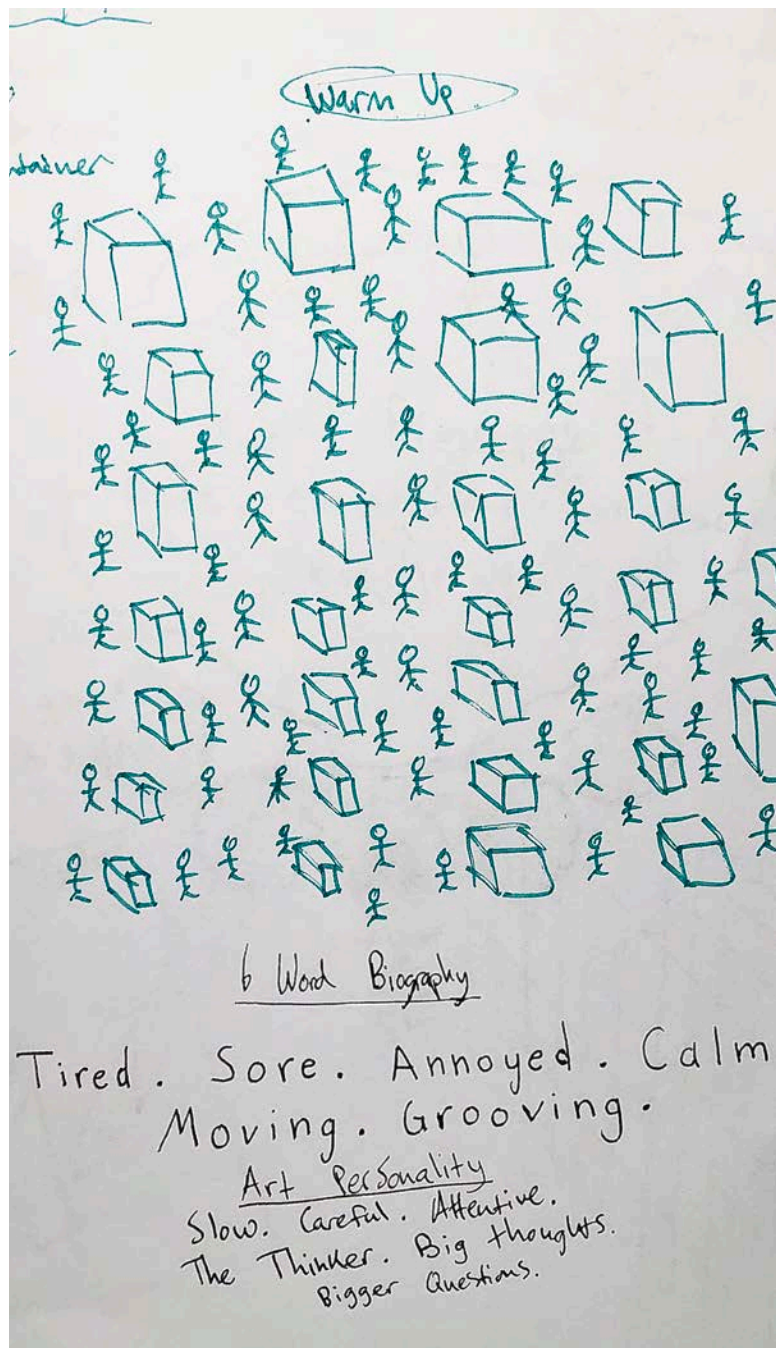 Warm Up
6 Word Biography
Tired. Sore. Annoyed. Calm
Moving. Grooving.
Art Personality
Slow. Careful. Attentive.
The Thinker. Big thoughts.
Bigger Questions.